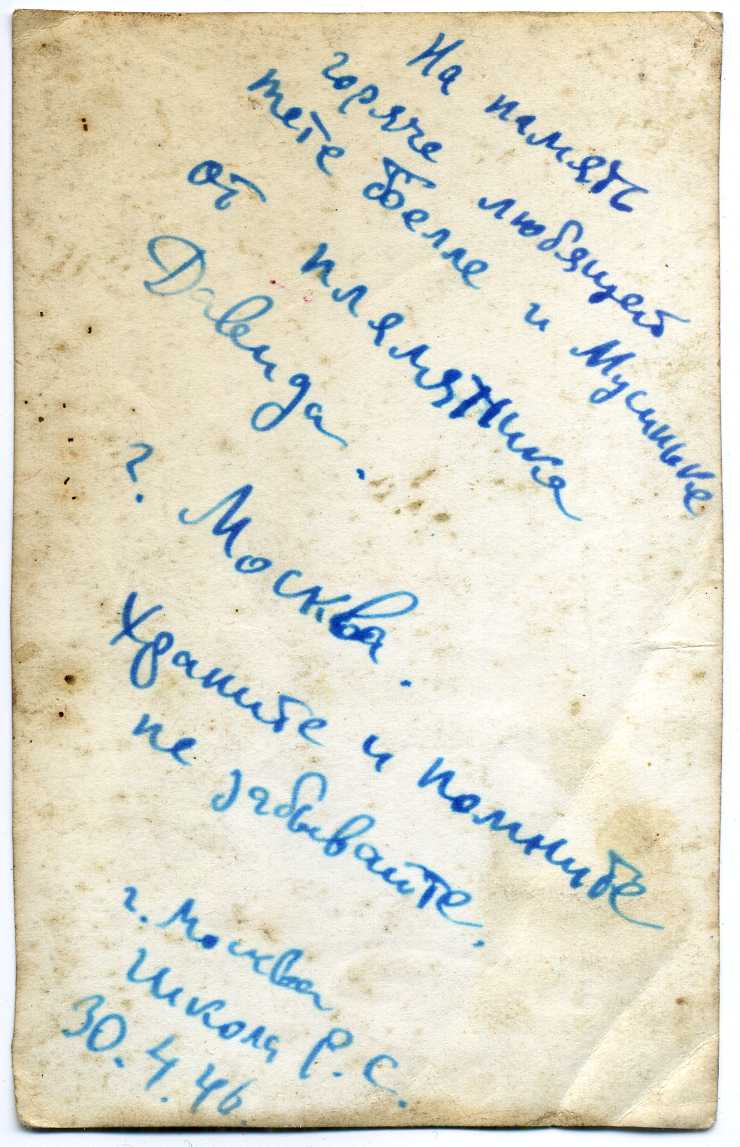 На память
горяче любящей
тете Бэлле и Мусиньке
от плямятника
Давида.
г. Москва.
Храните и помните
не забывайте.
г. Москва
Школа Р.С.
30.4.46.